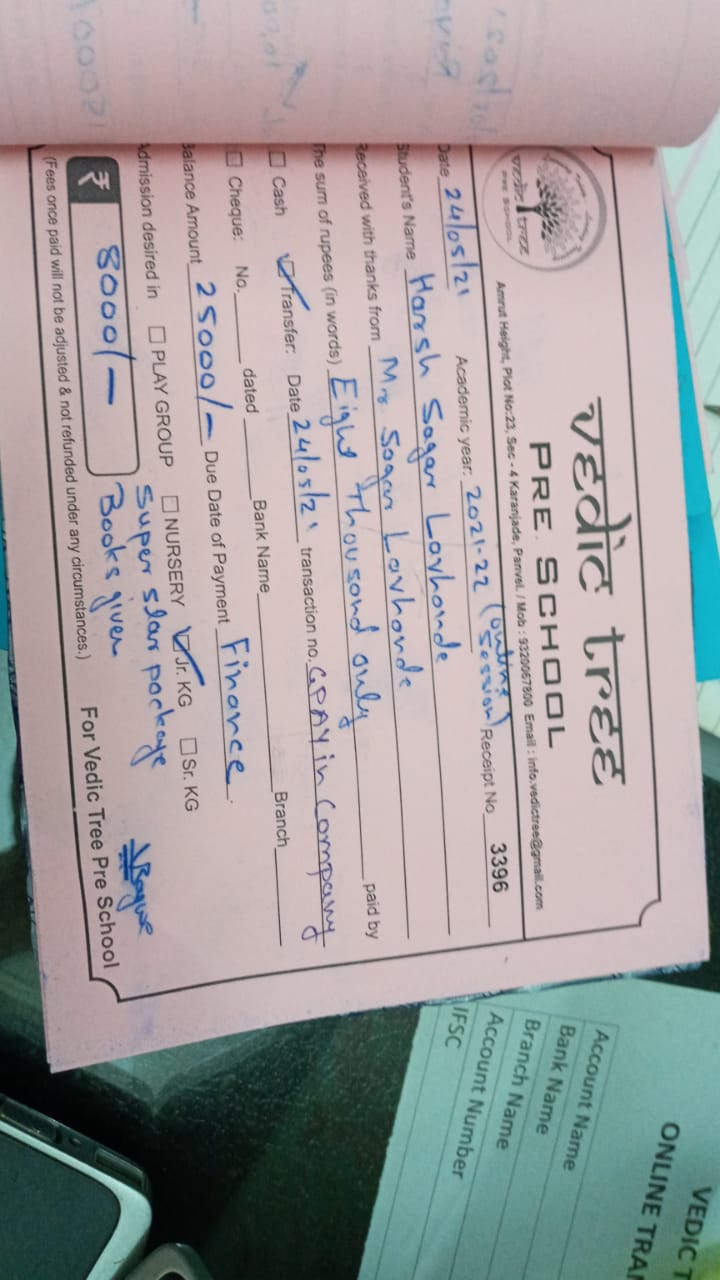 vedic tree
PRE SCHOOL
VEDIC TREE
PRE SCHOOL
Amrut Height, Plot No:23, Sec - 4 Karanjade, Panvel. / Mob : 9320067800 Email : info.vedictree@gmail.com
Date 24/05/21 Academic year: 2021-22 (online session) Receipt No 3396
Student's Name Harsh Sagar Lavhande
Received with thanks from Mr. Sagar Lavhande
The sum of rupees (in words) Eight Thousand only paid by
☐ Cash ☑ Transfer: Date 24/05/21 transaction no. GPAY in Company
☐ Cheque: No. dated Bank Name Branch
Balance Amount 25000/- Due Date of Payment Finance.
Admission desired in ☐ PLAY GROUP ☐ NURSERY ☑ Jr. KG ☐ Sr. KG
Super star package
₹ 8000/- Books given
For Vedic Tree Pre School
(Fees once paid will not be adjusted & not refunded under any circumstances.)
VEDIC T
ONLINE TRA
Account Name
Bank Name
Branch Name
Account Number
IFSC